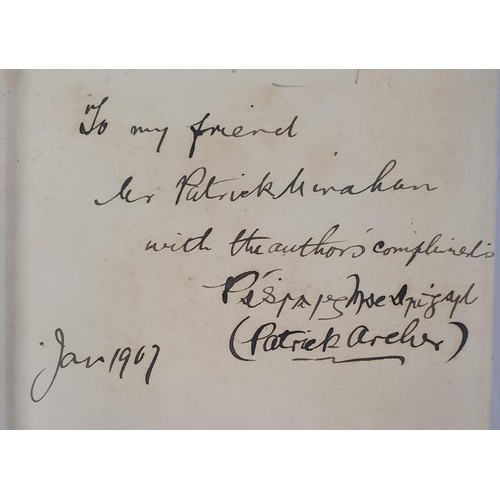 To my friend
Mr Patrick Minahan
with the author's compliments
(Patrick Archer)
Jan 1907